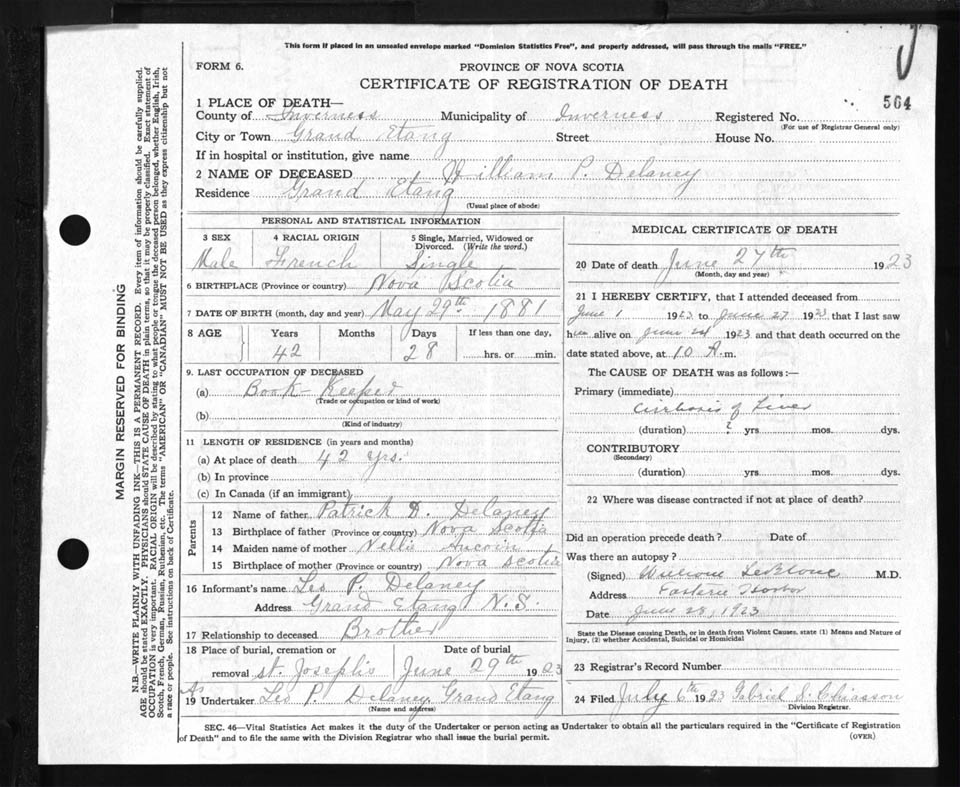 This form if placed in an unsealed envelope marked "Dominion Statistics Free", and properly addressed, will pass through the mails "FREE."
FORM 6.
PROVINCE OF NOVA SCOTIA
CERTIFICATE OF REGISTRATION OF DEATH
564
1 PLACE OF DEATH—
County of Inverness Municipality of Inverness Registered No.
(For use of Registrar General only)
City or Town Grand Etang Street House No.
If in hospital or institution, give name
2 NAME OF DECEASED William P. Delaney
Residence Grand Etang
(Usual place of abode)
PERSONAL AND STATISTICAL INFORMATION
3 SEX 4 RACIAL ORIGIN 5 Single, Married, Widowed or Divorced. (Write the word.)
Male French Single
6 BIRTHPLACE (Province or country) Nova Scotia
7 DATE OF BIRTH (month, day and year) May 29th 1881
8 AGE Years Months Days If less than one day,
42 28 hrs. or min.
9. LAST OCCUPATION OF DECEASED
(a) Book-Keeper
(Trade or occupation or kind of work)
(b)
(Kind of industry)
11 LENGTH OF RESIDENCE (in years and months)
(a) At place of death 42 yrs.
(b) In province
(c) In Canada (if an immigrant)
Parents
12 Name of father Patrick D. Delaney
13 Birthplace of father (Province or country) Nova Scotia
14 Maiden name of mother Nellie Aucoin
15 Birthplace of mother (Province or country) Nova Scotia
16 Informant's name Leo P. Delaney
Address Grand Etang N.S.
17 Relationship to deceased Brother
18 Place of burial, cremation or removal Date of burial
St. Joseph's June 29th 1923
As
19 Undertaker Leo P. Delaney Grand Etang
(Name and address)
MEDICAL CERTIFICATE OF DEATH
20 Date of death June 27th 1923
(Month, day and year)
21 I HEREBY CERTIFY, that I attended deceased from
June 1 1923 to June 27 1923 that I last saw
him alive on June 1923 and that death occurred on the
date stated above, at 10 A. m.
The CAUSE OF DEATH was as follows:—
Primary (immediate)
Cirrhosis of Liver
(duration) ? yrs. mos. dys.
CONTRIBUTORY
(Secondary)
(duration) yrs. mos. dys.
22 Where was disease contracted if not at place of death?
Did an operation precede death? Date of
Was there an autopsy?
(Signed) LeBlanc M.D.
Address Eastern Harbor
Date June 28, 1923
State the Disease causing Death, or in death from Violent Causes, state (1) Means and Nature of
Injury, (2) whether Accidental, Suicidal or Homicidal
23 Registrar's Record Number
24 Filed July 6th 1923 Gabriel S. Chiasson
Division Registrar.
SEC. 46—Vital Statistics Act makes it the duty of the Undertaker or person acting as Undertaker to obtain all the particulars required in the "Certificate of Registration
of Death" and to file the same with the Division Registrar who shall issue the burial permit.
(OVER)
MARGIN RESERVED FOR BINDING
N.B.—WRITE PLAINLY WITH UNFADING INK—THIS IS A PERMANENT RECORD. Every item of information should be carefully supplied.
AGE should be stated EXACTLY. PHYSICIANS should STATE CAUSE OF DEATH in plain terms, so that it may be properly classified. Exact statement of
OCCUPATION is very important. RACIAL ORIGIN will be described by stating to what people or tongue the deceased person belonged, whether English, Irish,
Scotch, French, German, Russian, Ruthenian, etc. The terms "AMERICAN" OR "CANADIAN" MUST NOT BE USED as they express citizenship but not
a race or people. See instructions on back of Certificate.